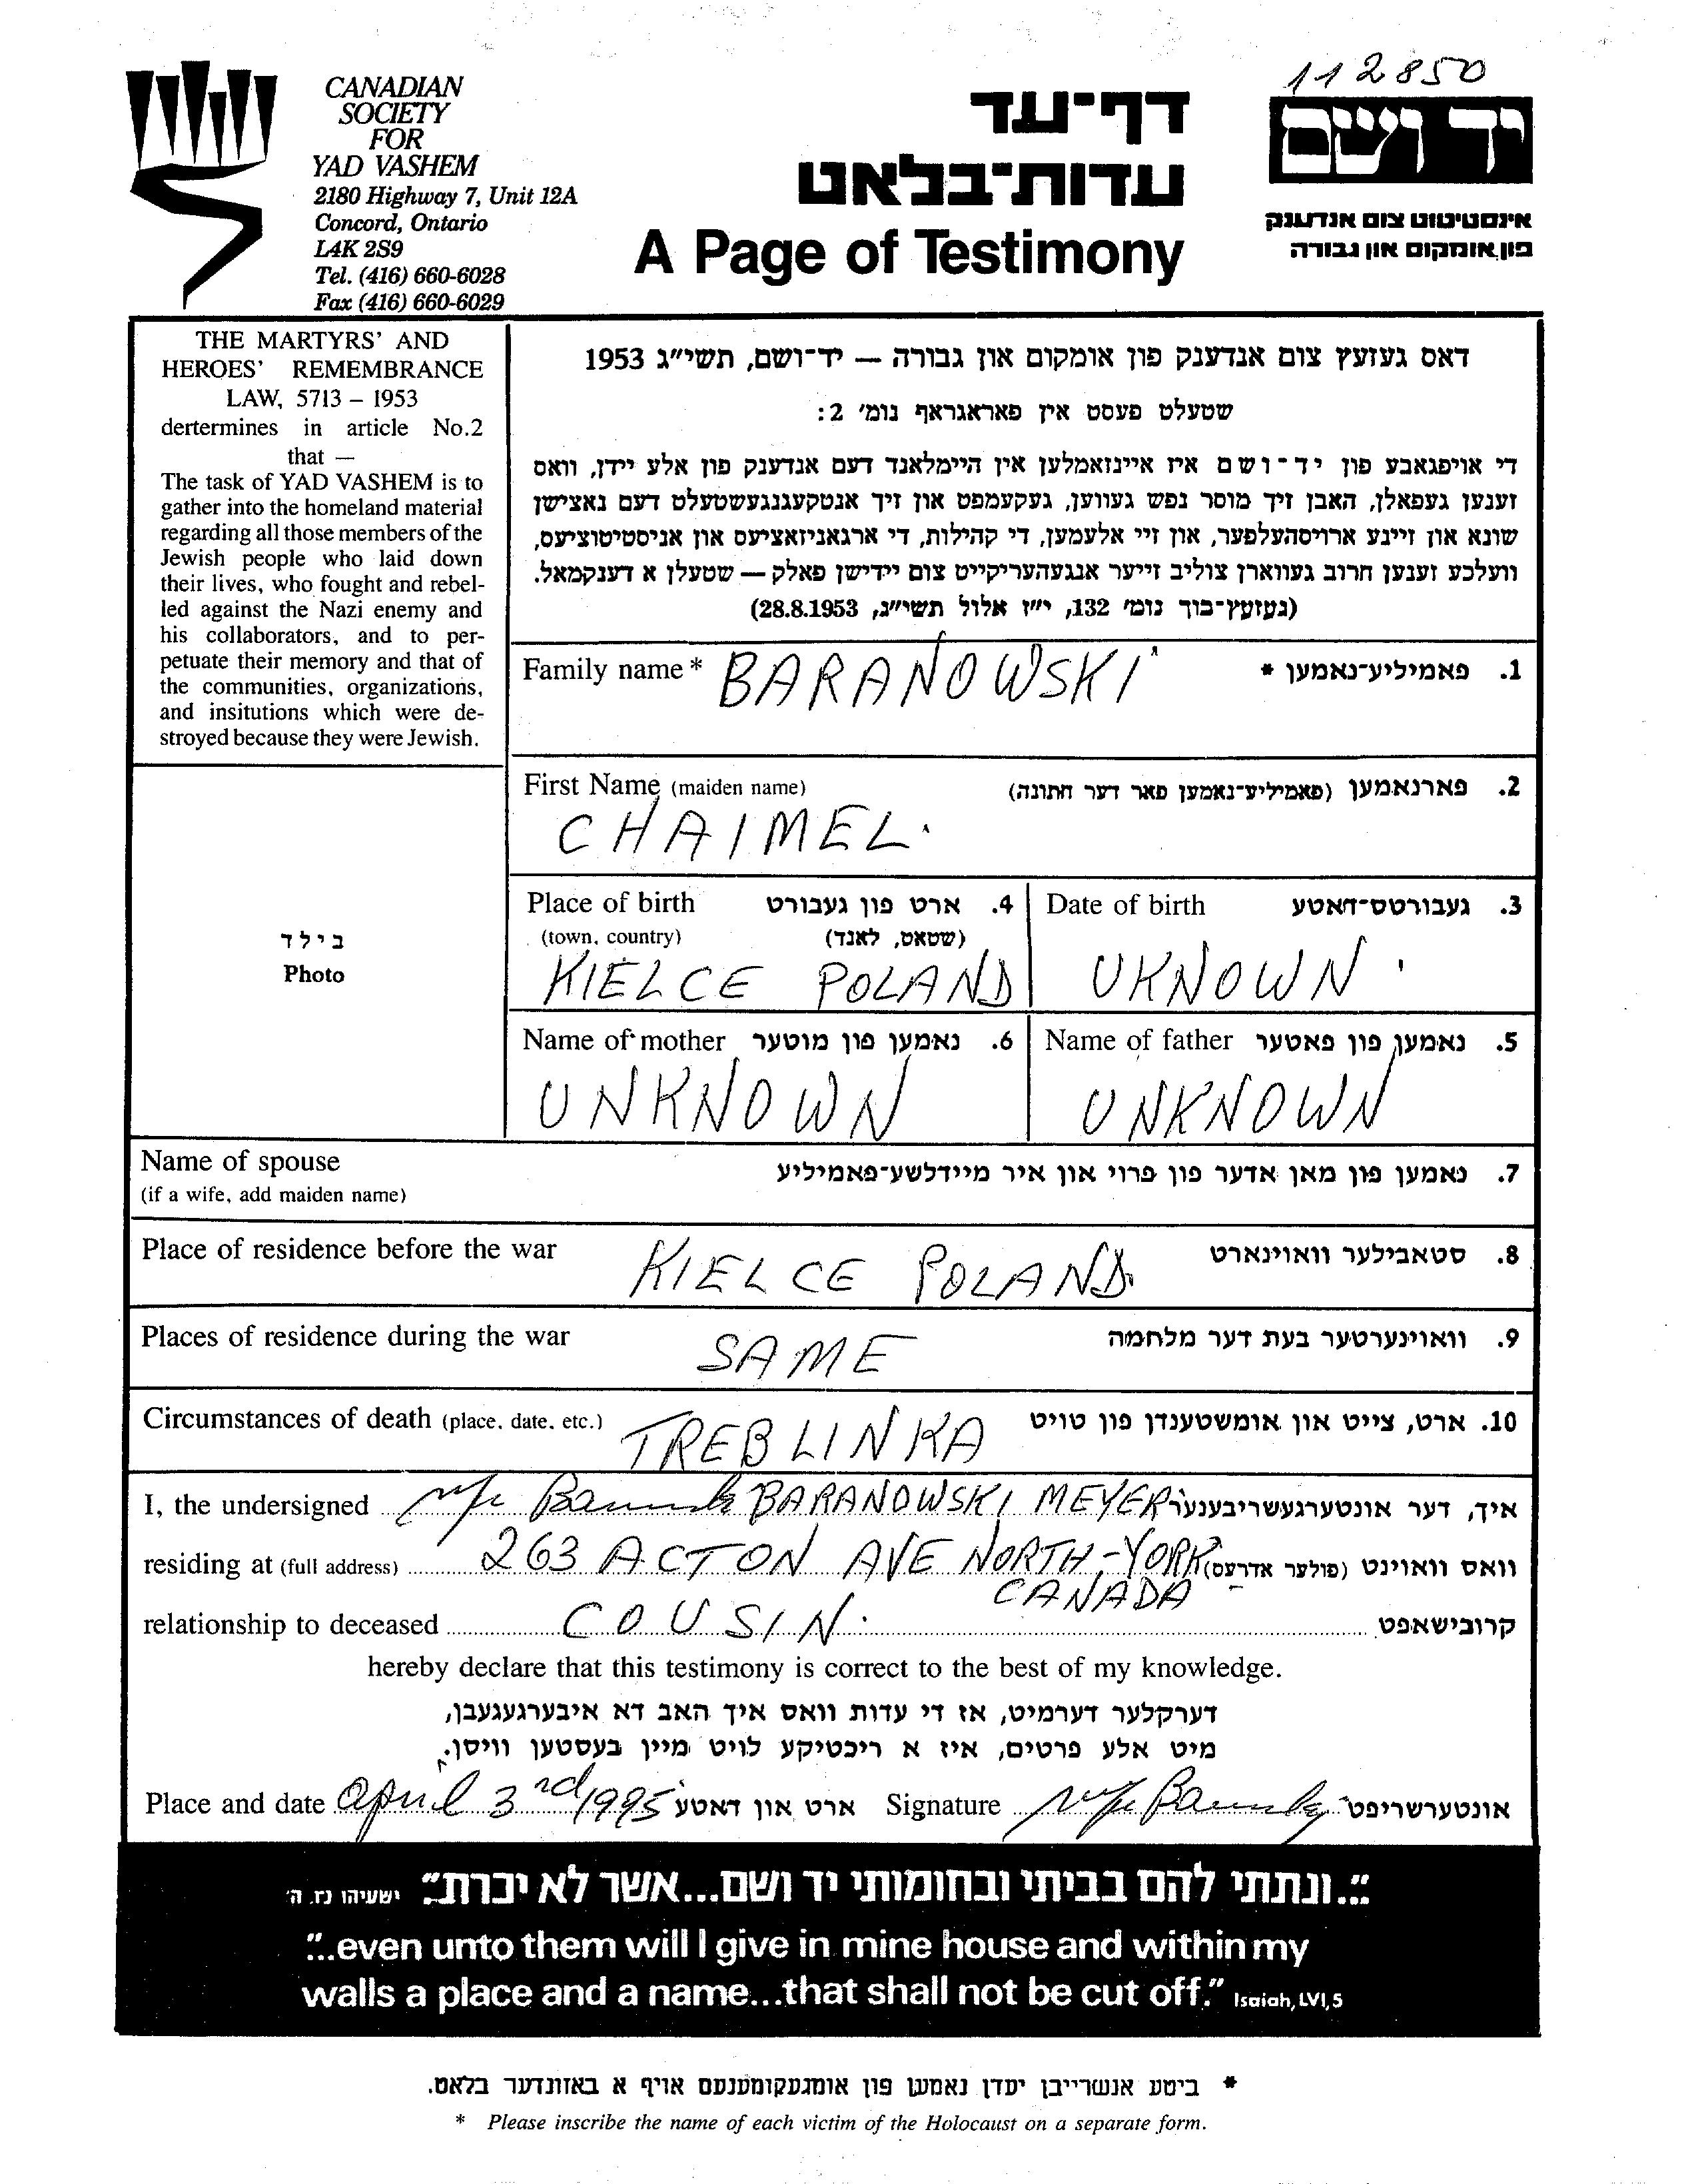 112850
CANADIAN
SOCIETY
FOR
YAD VASHEM
2180 Highway 7, Unit 12A
Concord, Ontario
L4K 2S9
Tel. (416) 660-6028
Fax (416) 660-6029
דף-עד
עדות-בלאט
A Page of Testimony
יד ושם
אינסטיטוט צום אנדענק
פון אומקום און גבורה
THE MARTYRS' AND
HEROES' REMEMBRANCE
LAW, 5713 – 1953
dertermines in article No.2
that —
The task of YAD VASHEM is to
gather into the homeland material
regarding all those members of the
Jewish people who laid down
their lives, who fought and rebel-
led against the Nazi enemy and
his collaborators, and to per-
petuate their memory and that of
the communities, organizations,
and insitutions which were de-
stroyed because they were Jewish.
דאס געזעץ צום אנדענק פון אומקום און גבורה — יד-ושם, תשי״ג 1953
שטעלט פעסט אין פאראגראף נומ׳ 2:
די אויפגאבע פון יד-ושם איז איינזאמלען אין היימלאנד דעם אנדענק פון אלע יידן, וואס
זענען געפאלן, האבן זיך מוסר נפש געווען, געקעמפט און זיך אנטקעגנגעשטעלט דעם נאצישן
שונא און זיינע ארויסהעלפער, און זיי אלעמען, די קהילות, די ארגאניזאציעס און אניסטיטוציעס,
וועלכע זענען חרוב געווארן צוליב זייער אנגעהעריקייט צום יידישן פאלק — שטעלן א דענקמאל.
(געזעץ-בוך נומ׳ 132, י״ז אלול תשי״ג, 28.8.1953)
Family name * BARANOWSKI פאמיליע-נאמען * .1
First Name (maiden name) פארנאמען (פאמיליע-נאמען פאר דער חתונה) .2
CHAIMEL.
Place of birth ארט פון געבורט .4 Date of birth געבורטס-דאטע .3
(town, country) (שטאט, לאנד)
KIELCE POLAND UKNOWN.
בילד
Photo
Name of mother נאמען פון מוטער .6 Name of father נאמען פון פאטער .5
UNKNOWN UNKNOWN
Name of spouse נאמען פון מאן אדער פון פרוי און איר מיידלשע-פאמיליע .7
(if a wife, add maiden name)
Place of residence before the war KIELCE POLAND. סטאבילער וואוינארט .8
Places of residence during the war SAME וואוינערטער בעת דער מלחמה .9
Circumstances of death (place, date, etc.) TREBLINKA ארט, צייט און אומשטענדן פון טויט .10
I, the undersigned BARANOWSKI MEYER איך, דער אונטערגעשריבענער
residing at (full address) 263 ACTON AVE NORTH-YORK וואס וואוינט (פולער אדרעס)
CANADA
relationship to deceased COUSIN. קרובישאפט
hereby declare that this testimony is correct to the best of my knowledge.
דערקלער דערמיט, אז די עדות וואס איך האב דא איבערגעגעבן,
מיט אלע פרטים, איז א ריכטיקע לויט מיין בעסטען וויסן.
Place and date April 3rd/1995 ארט און דאטע Signature אונטערשריפט
"...ונתתי להם בביתי ובחומותי יד ושם...אשר לא יכרת" ישעיהו נז. ה׳
"...even unto them will I give in mine house and within my
walls a place and a name...that shall not be cut off." Isaiah, LVI, 5
* ביטע אנשרייבן יעדן נאמען פון אומגעקומענעם אויף א באזונדער בלאט.
* Please inscribe the name of each victim of the Holocaust on a separate form.